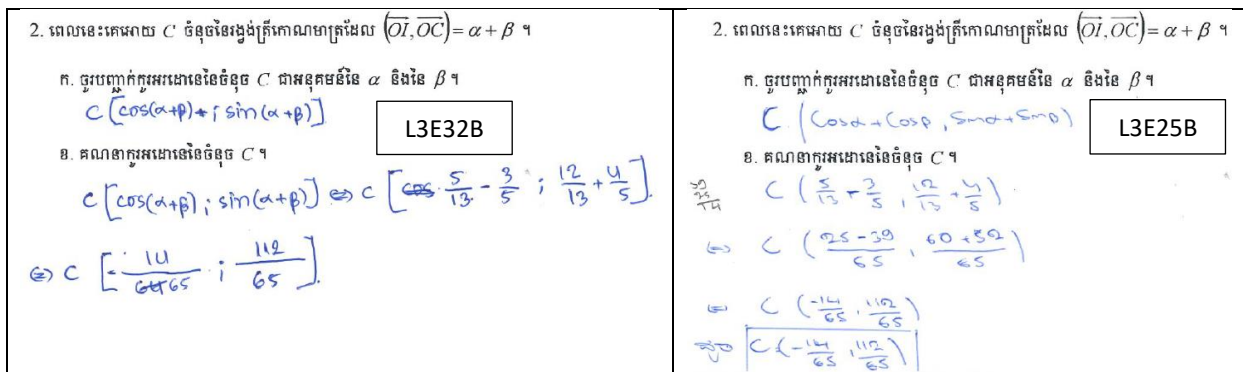 2. ពេលនេះគេអោយ C ចំនុចនៃរង្វង់ត្រីកោណមាត្រដែល (OI, OC) = α + β ។
ក. ចូរបញ្ជាក់កូអរដោនេនៃចំនុច C ជាអនុគមន៍នៃ α និងនៃ β ។
C [cos(α+β) ; sin(α+β)]
L3E32B
ខ. គណនាកូអរដោនេនៃចំនុច C ។
C [cos(α+β) ; sin(α+β)] ⇔ C [5/13 - 3/5 ; 12/13 + 4/5].
⇔ C [-14/65 ; 112/65].
2. ពេលនេះគេអោយ C ចំនុចនៃរង្វង់ត្រីកោណមាត្រដែល (OI, OC) = α + β ។
ក. ចូរបញ្ជាក់កូអរដោនេនៃចំនុច C ជាអនុគមន៍នៃ α និងនៃ β ។
C (cosα + cosβ , sinα + sinβ)
L3E25B
ខ. គណនាកូអរដោនេនៃចំនុច C ។
C (5/13 - 3/5 , 12/13 + 4/5)
⇔ C (25-39/65 , 60+52/65)
⇔ C (-14/65 , 112/65)
C (-14/65 , 112/65)